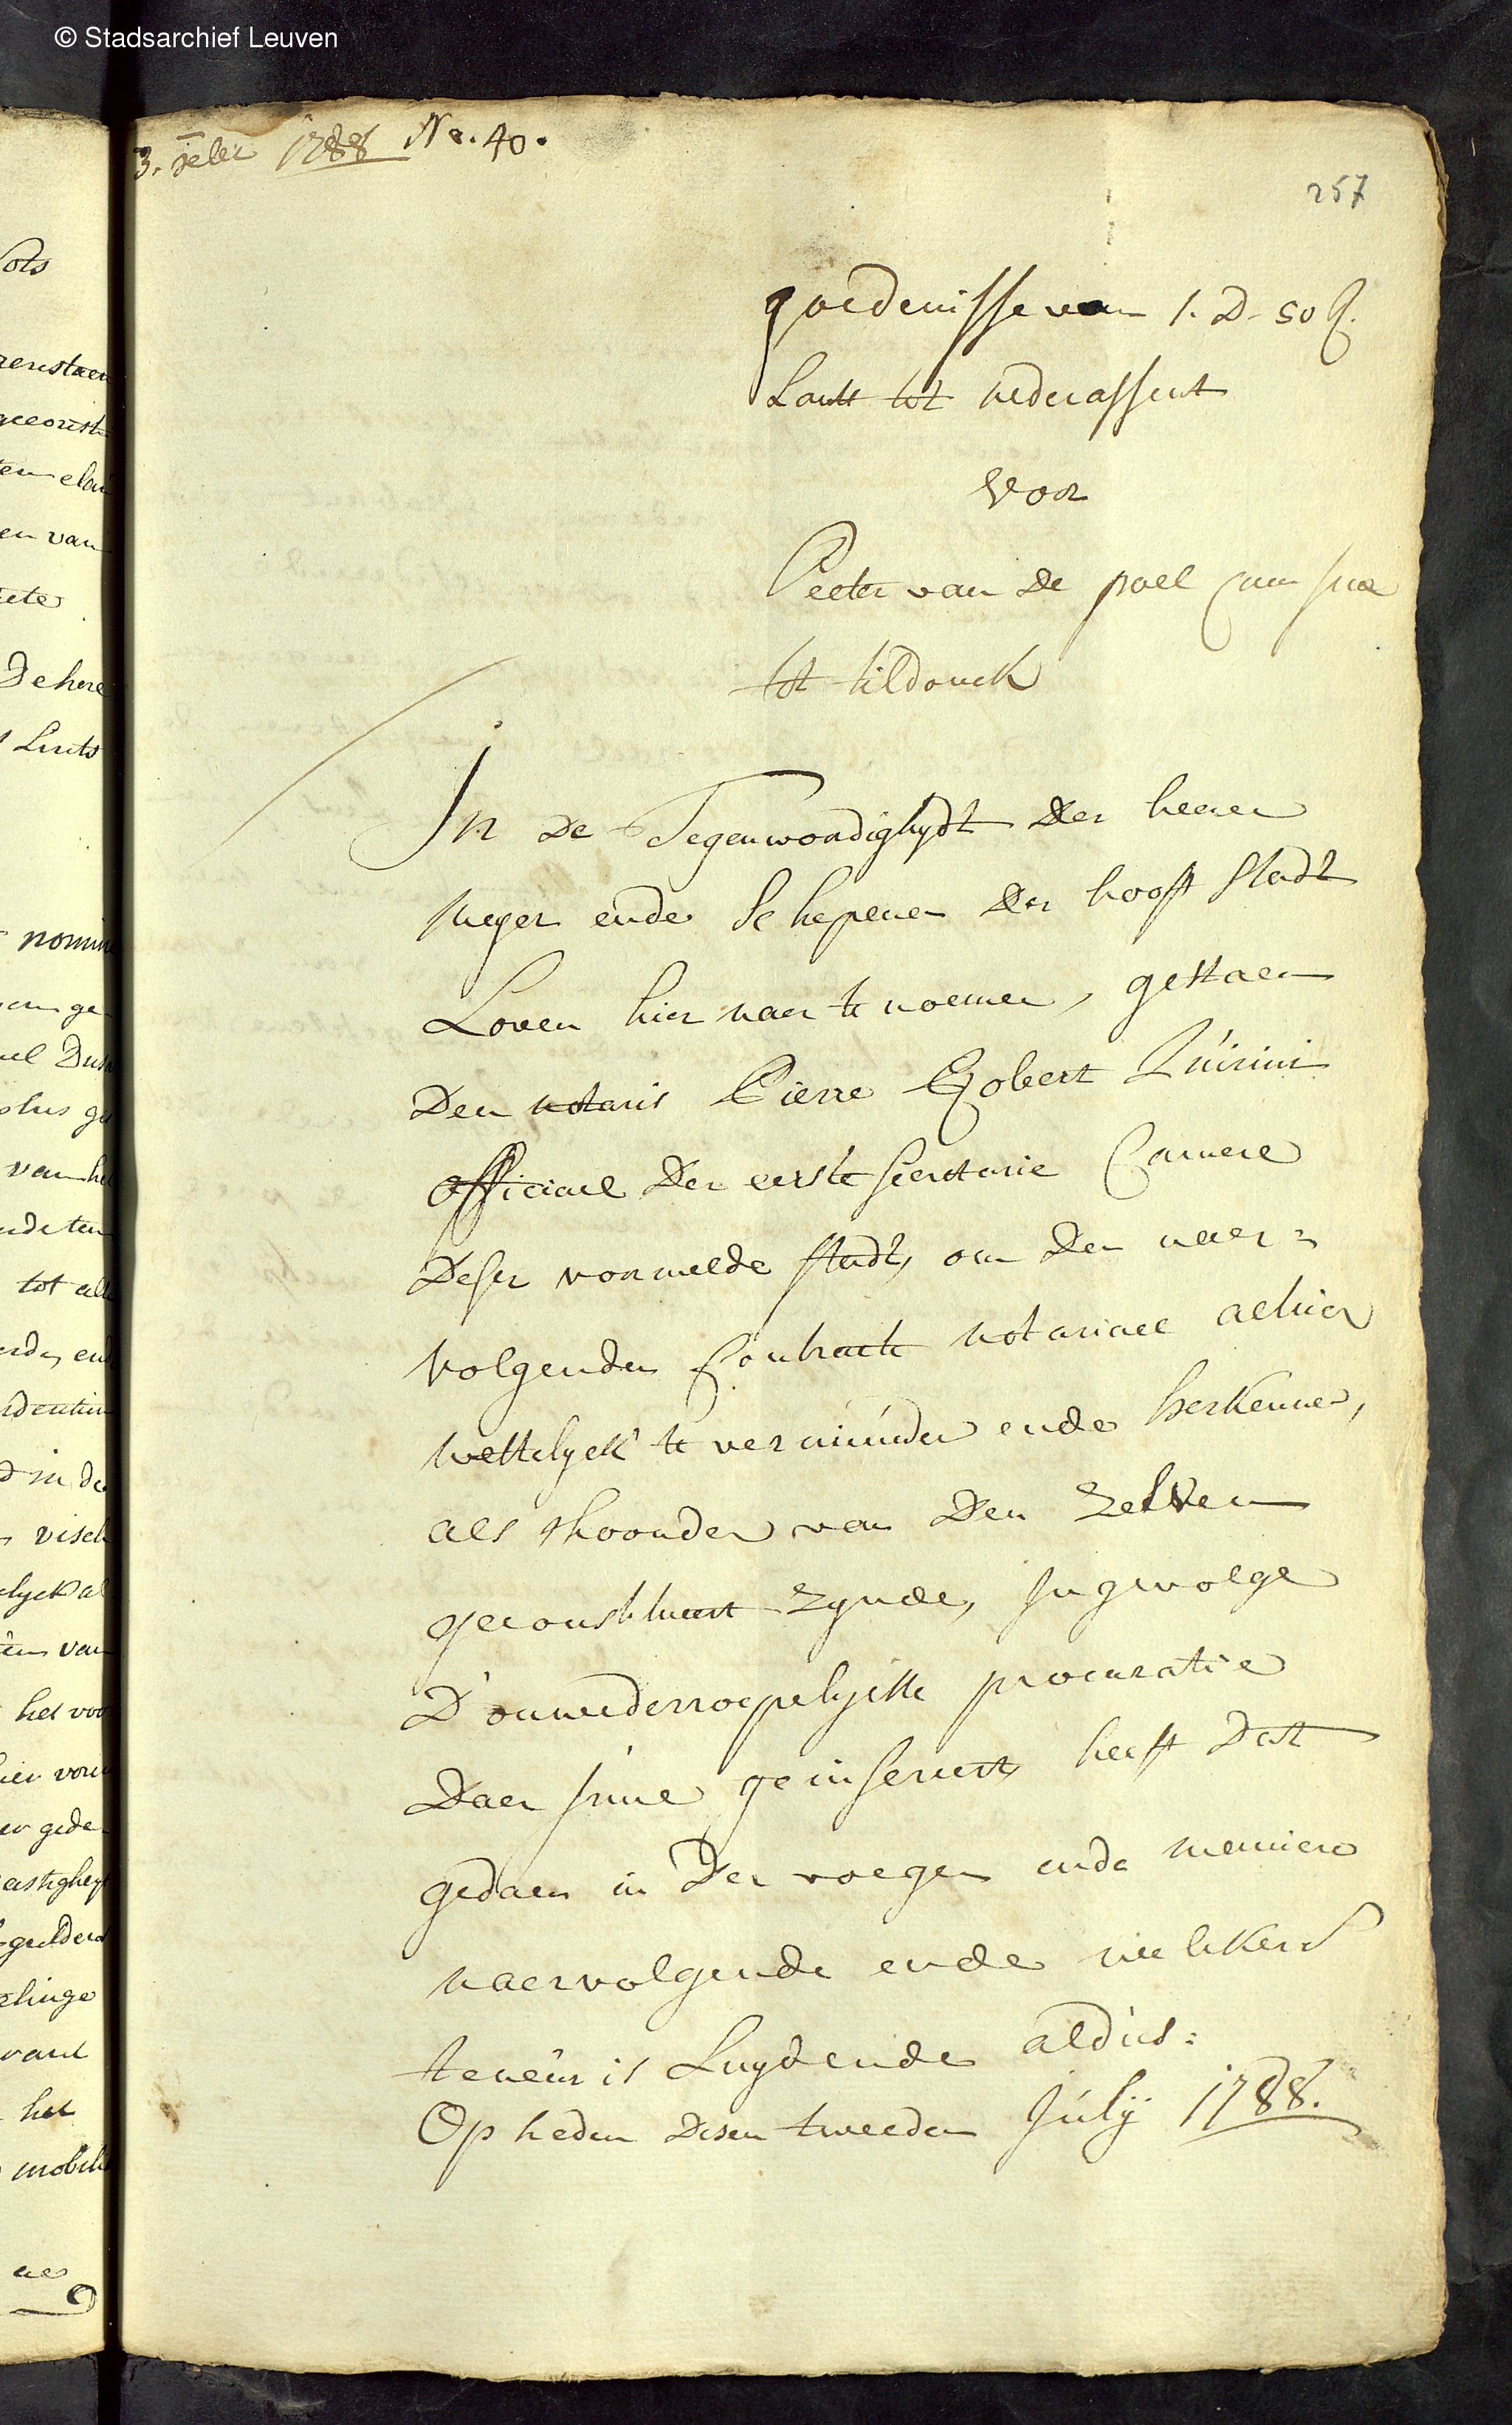 © Stadsarchief Leuven
3. 7ber 1788 No. 40.
257
goedenisse van 1. D. 50 R.
Lant tot nederassent
voor
Peeter van de poel cum sua
tot tildonck
In de Tegenwoordighydt der heeren
meyer ende Schepenen der hooft stadt
Loven hier naer te noemen, gestaen
Den notaris Pierre Robert Quirini
officiael der eerste secretarie Camere
Deser voormelde stadt, om den naer=
volgenden Contracte notariael alhier
wettelyck te vernieuwen ende herkennen,
als thoonder van den zelven
geconstitueert zynde, ingevolge
D'onwederroepelycke procuratie
Daer inne geinsereert, heeft dat
gedaen in der voegen ende manieren
naervolgende ende wiens
teneur is Luydende aldus:
Op heden desen tweeden July 1788.
ots
en van
Dehere
Lints
nomine
ge
van het
tot alle
in de
visch
van
het voor
hier
gede
gulden
elinge
vant
het